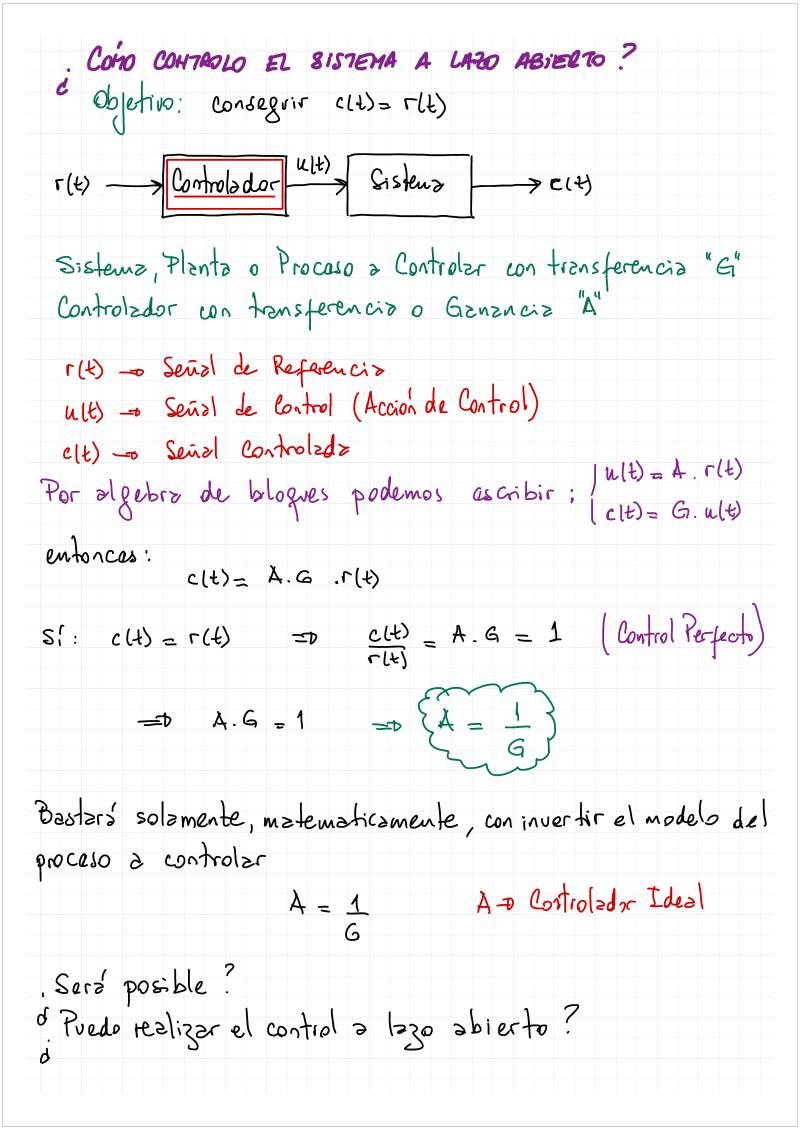 ¿CÓMO CONTROLO EL SISTEMA A LAZO ABIERTO?
Objetivo: conseguir c(t) = r(t)
r(t) Controlador u(t) Sistema c(t)
Sistema, Planta o Proceso a Controlar con transferencia "G"
Controlador con transferencia o Ganancia "A"
r(t) → Señal de Referencia
u(t) → Señal de Control (Acción de Control)
c(t) → Señal Controlada
Por algebra de bloques podemos escribir: { u(t) = A . r(t)
c(t) = G . u(t)
entonces:
c(t) = A.G .r(t)
Sí: c(t) = r(t) ⇒ c(t)/r(t) = A.G = 1 (Control Perfecto)
⇒ A.G = 1 ⇒ A = 1/G
Bastará solamente, matematicamente, con invertir el modelo del
proceso a controlar
A = 1/G A → Controlador Ideal
¿Será posible?
¿Puedo realizar el control a lazo abierto?